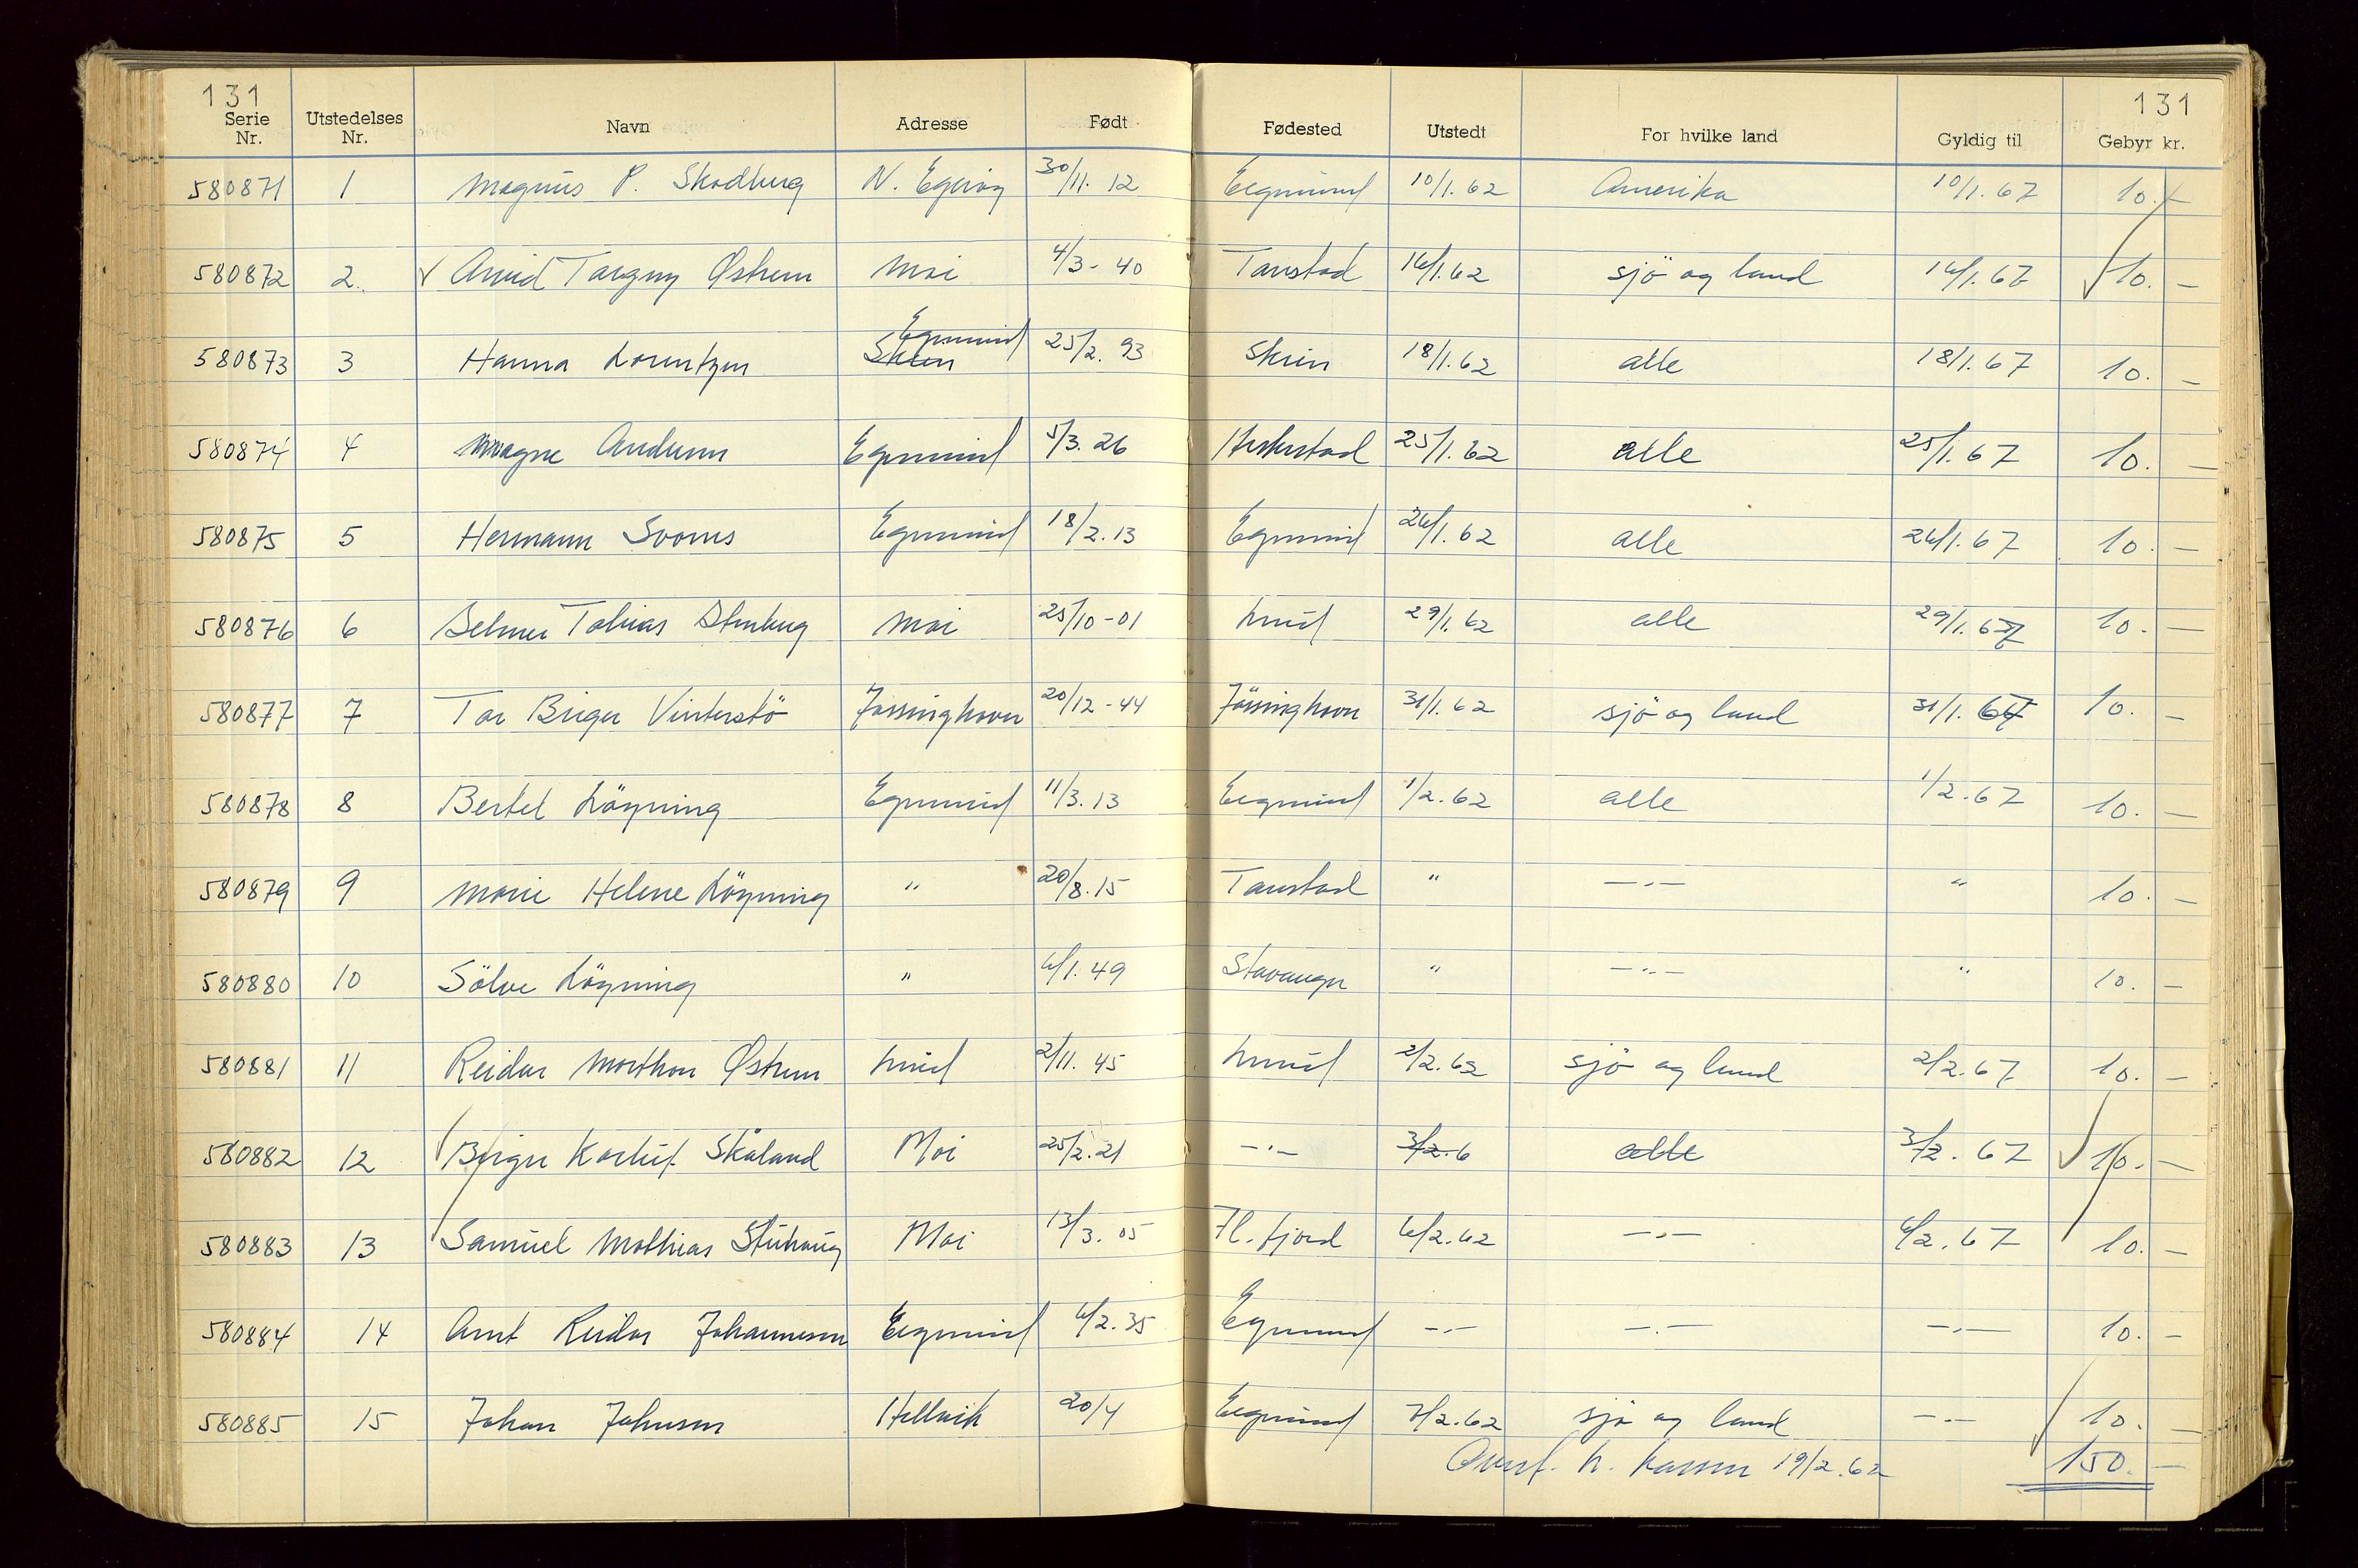 131 131
Serie Nr. Utstedelses Nr. Navn Adresse Født Fødested Utstedt For hvilke land Gyldig til Gebyr kr.
580871 1 Magnus P. Skadberg N. Egerøy 30/11. 12 Eegersund 10/1. 62 Amerika 10/1. 67 10. —
580872 2. Arvid Torgny Østrem Moi 4/3 - 40 Tonstad 16/1. 62 sjö og land 16/1. 67 10. —
580873 3 Hanna Lorentzen Skien Egersund 25/2. 93 Skien 18/1. 62 alle 18/1. 67 10. —
580874 4 Magne Andersen Egersund 5/3. 26 Heskestad 25/1. 62 alle 25/1. 67 10. —
580875 5 Hermann Svanes Egersund 18/2. 13 Egersund 26/1. 62 alle 26/1. 67 10. —
580876 6 Selmer Tobias Stenberg Moi 25/10 - 01 Lund 29/1. 62 alle 29/1. 67 10. —
580877 7 Tor Birger Vinterstö Jössinghavn 20/12 - 44 Jössinghavn 31/1. 62 sjö og land 31/1. 67 10. —
580878 8 Bertel Lögning Egersund 11/3. 13 Eegersund 1/2. 62 alle 1/2. 67 10. —
580879 9 Marie Helene Lögning " 20/8. 15 Tonstad " —"— " 10. —
580880 10 Sölve Lögning " 6/1. 49 Stavanger " —"— " 10. —
580881 11 Reidar Morthon Østrem Lund 2/11. 45 Lund 2/2. 62 sjö og land 2/2. 67 10. —
580882 12 Birger Karluf Skåland Moi 25/2. 21 —"— 3/2. 6 alle 3/2. 67 10. —
580883 13 Samuel Mathias Stuhaug Moi 13/3. 05 Fl. fjord 6/2. 62 —"— 6/2. 67 10. —
580884 14 Arnt Reidar Johannesen Eegersund 6/2. 35 Egersund —"— —"— —"— 10. —
580885 15 Johan Johnsen Hellvik 20/4 Eegersund 7/2. 62 sjö og land —"— 10. —
19/2. 62 150. —